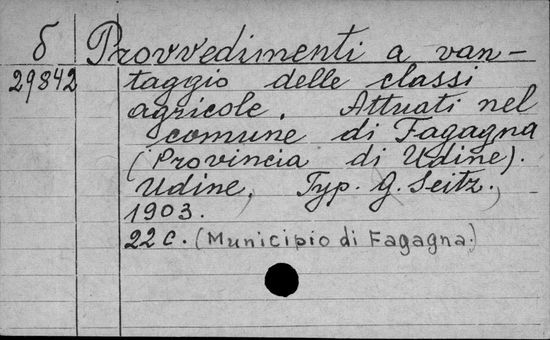 б Provvedimenti a van-
29842 taggio delle classi
agricole. Attuati nel
comune di Fagagna
(Provincia di Udine).
Udine, Typ. G. Seitz,
1903.
22 c. (Municipio di Fagagna.)